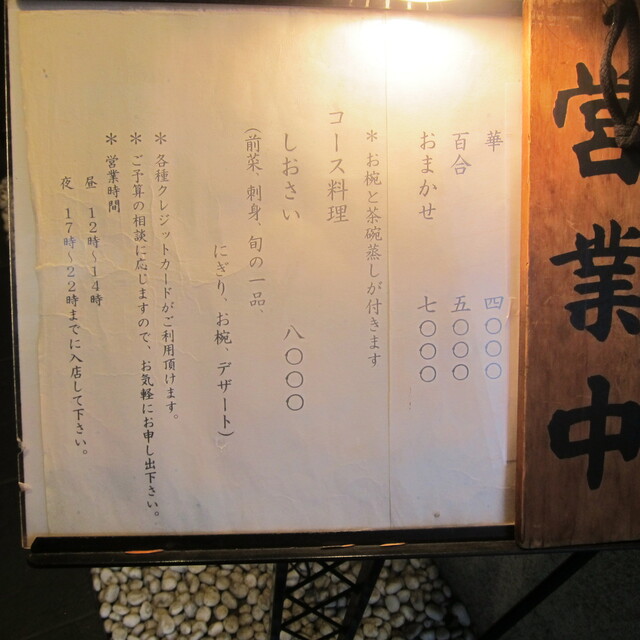 営業中
華 四〇〇〇
百合 五〇〇〇
おまかせ 七〇〇〇
＊お椀と茶碗蒸しが付きます
コース料理
しおさい 八〇〇〇
（前菜、刺身、旬の一品、
にぎり、お椀、デザート）
＊各種クレジットカードがご利用頂けます。
＊ご予算の相談に応じますので、お気軽にお申し出下さい。
＊営業時間
昼 12時〜14時
夜 17時〜22時までに入店して下さい。